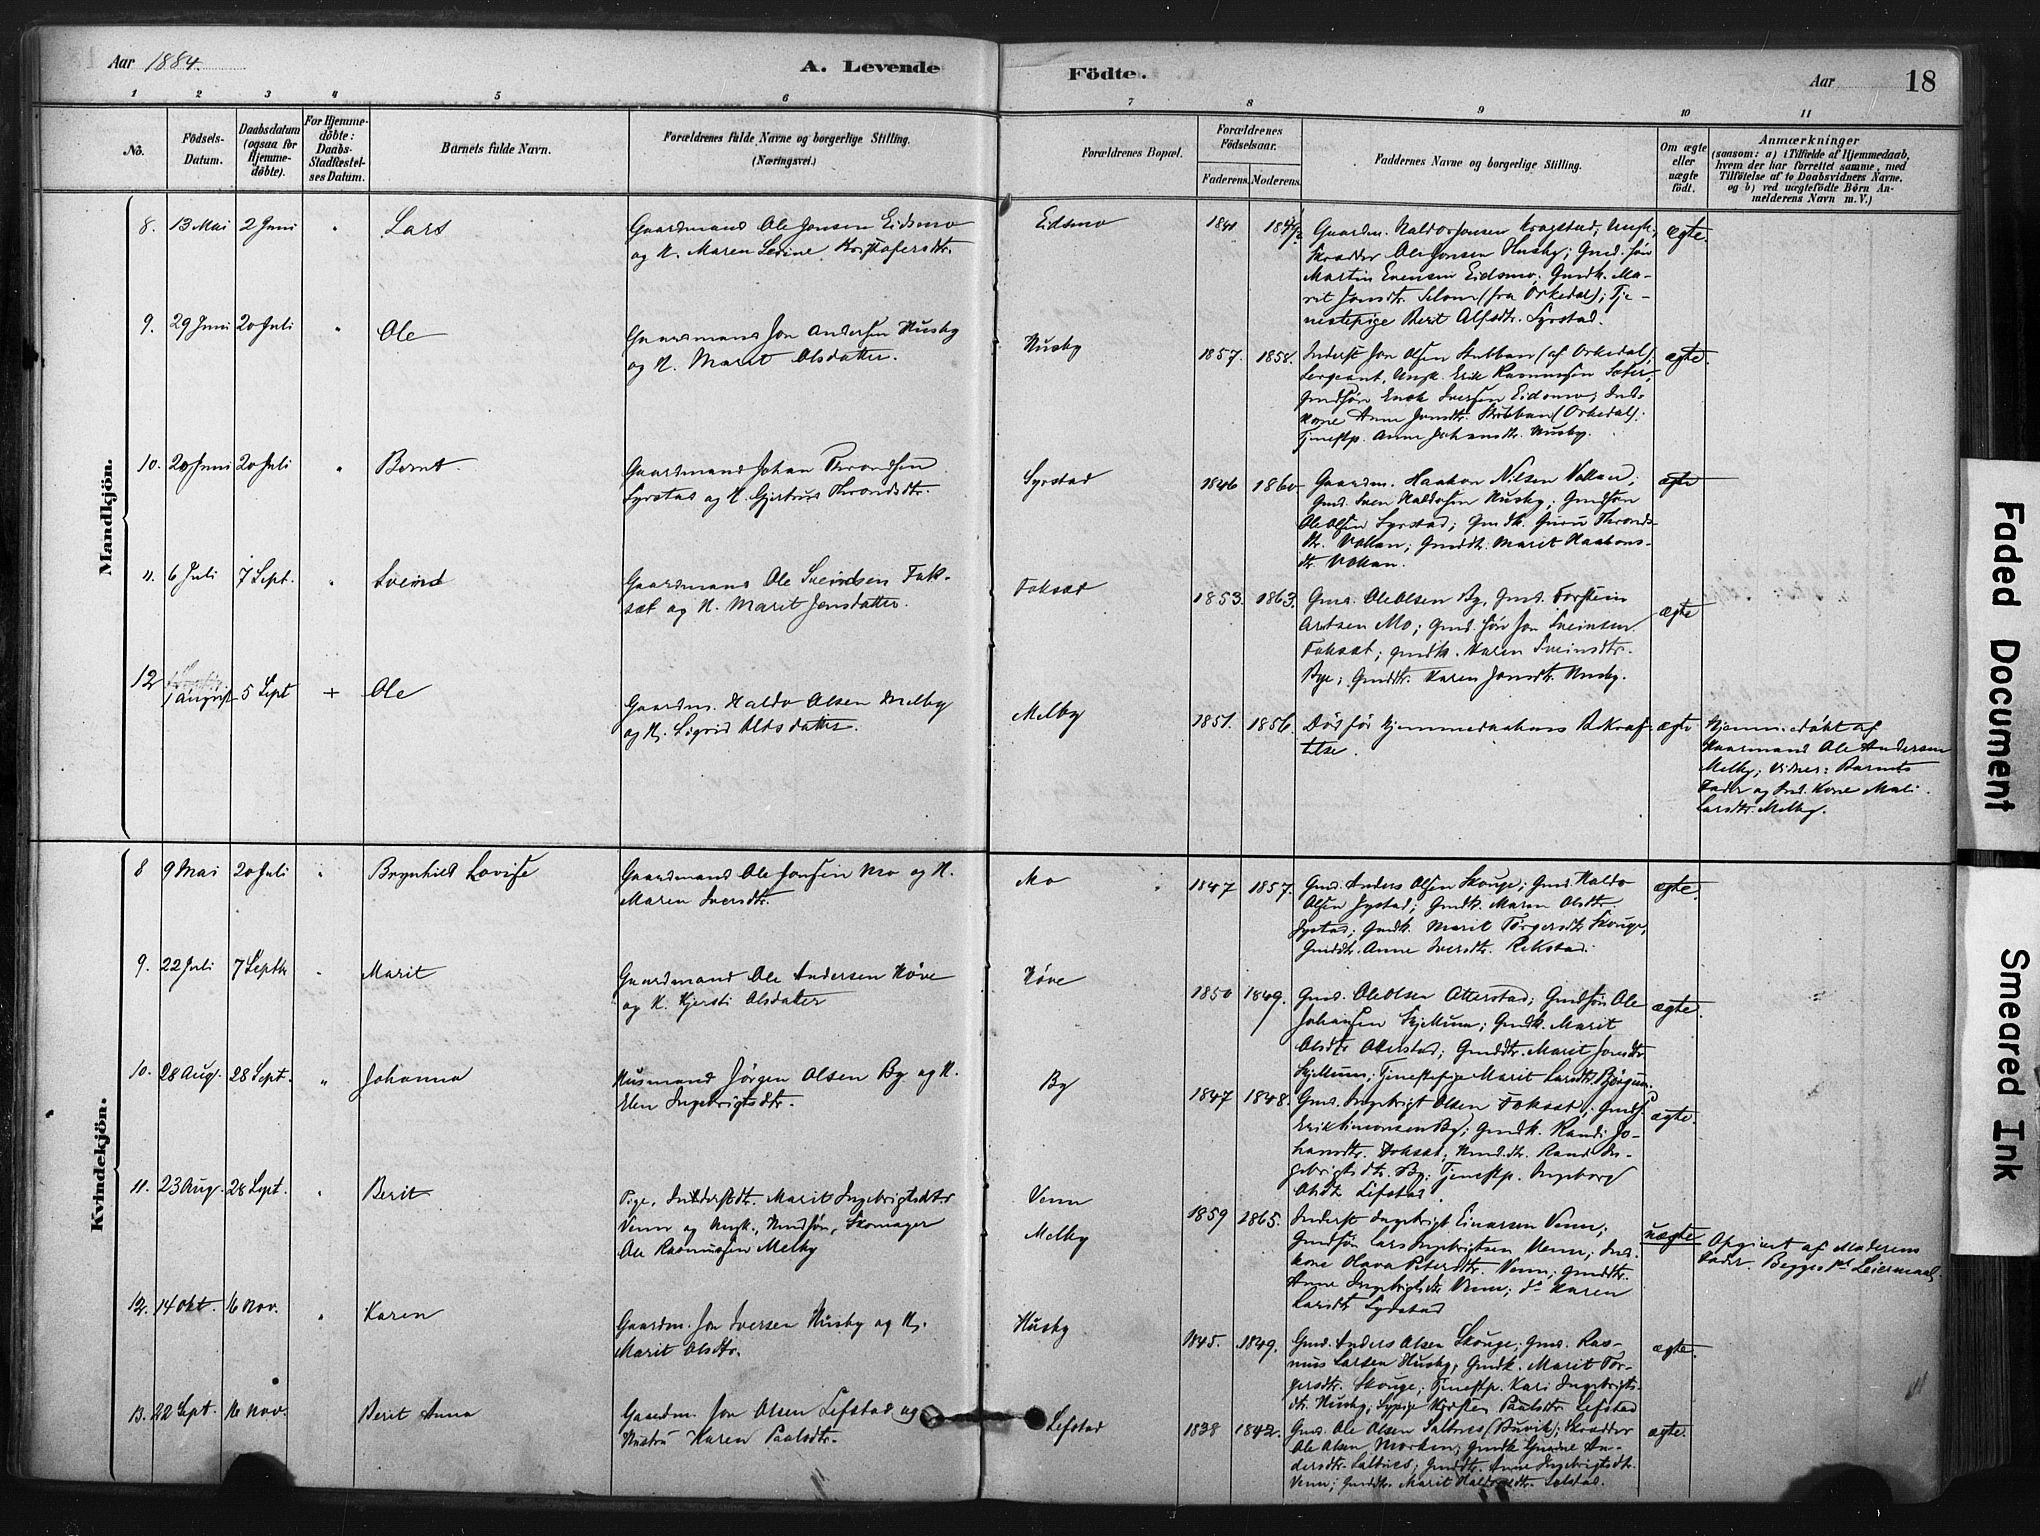 Aar 1884.
A. Levende
Födte.
Aar
18
1 2 3 4 5 6 7 8 9 10 11
No.
Födsels-
Datum.
Daabsdatum
(ogsaa for
Hjemme-
döbte).
For Hjemme-
döbte:
Daabs-
Stadfæstel-
ses Datum.
Barnets fulde Navn.
Forældrenes fulde Navne og borgerlige Stilling.
(Næringsvei.)
Forældrenes Bopæl.
Forældrenes
Födselsaar.
Faderens. Moderens.
Faddernes Navne og borgerlige Stilling.
Om ægte
eller
uægte
födt.
Anmærkninger
(saasom: a) i Tilfælde af Hjemmedaab,
hvem der har forrettet samme, med
Tilföielse af to Daabsvidners Navne.
og b) ved uægtefödte Börn An-
melderens Navn m. V.)
Mandkjön.
8. 13 Mai 2 Juni " Lars
Gaardmand Ole Jonsen Eidsmo
og K. Maren Sevine Kristofersdtr.
Eidsmo
1841
Gaardm. Haldor Jonsen Krogstad, Ungk.,
Skrædder Ole Jonsen Husby; Gmd. søn
Martin Evensen Eidsmo; Gmdk. Ma-
rit Jonsdtr. Selom (fra Orkedal); Tje-
nestepige Berit Alfsdtr. Syrstad.
ægte.
9. 29 Juni 20 Juli " Ole
Gaardmand Jon Andersen Husby
og K. Marit Olsdatter.
Husby
1857. 1858.
Inderst Jon Olsen Stubban (af Orkedal);
Sergeant, Ungk. Erik Rasmussen Sæter;
Gmdsøn Enok Iversen Eidsmo; Ind.
kone Anne Jonsdtr. Stubban (Orkedal);
Tjenestp. Anne Johansdtr. Husby.
ægte.
10. 20 Juni 20 Juli " Bernt.
Gaardmand Johan Throndsen
Syrstad og K. Gjertrud Throndsdtr.
Syrstad
1846 1860
Gaardm. Haakon Nilsen Vollan;
Gmd. Sven Haldosen Husby; Gmdsøn
Ole Olsen Syrstad; Gmdk. Guru Thronds-
dtr. Vollan; Gmddtr. Marit Haakons-
dtr. Vollan.
ægte
11. 6 Juli 7 Sept. " Sveind
Gaardmand Ole Sveindsen Fok-
sæt og K. Marit Jonsdatter.
Foksæt
1853. 1863.
Gmd. Ole Olsen By, Gmd. Torstein
Arntsen Mo; Gmd. søn Jon Sveinsen
Foksæt; Gmdk. Karen Sveinsdtr.
Bye; Gmddtr. Karen Jonsdtr. Husby.
ægte
12 1 August 5 Sept + Ole
Gaardm. Haldo Olsen Melby
og K. Sigrid Olsdatter.
Melby
1851. 1856.
Død før Hjemmedaabens Bekræf-
telse.
ægte
Hjemmedøbt af
Kaarmand Ole Andersen
Melby; Vidner: Barnets
Fader og Ind. Kone Mali
Larsdtr. Melby.
Kvindekjön.
8 9 Mai 20 Juli " Brynhild Lovise
Gaardmand Ole Jonsen Mo og K.
Maren Iversdtr.
Mo
1847 1857.
Gmd. Anders Olsen Skouge; Gmd. Haldo
Olsen Jystad; Gmdk. Maren Olsdtr.
Jystad; Gmdk. Marit Törgersdtr. Skouge,
Gmddtr. Anne Iversdtr. Rekstad.
ægte.
9. 22 Juli 7 Septb " Marit
Gaardmand Ole Andersen Höve
og K. Kjersti Olsdatter
Höve
1850 1849.
Gmd. Ole Olsen Atterstad; Gmdsøn Ole
Johansen Skjellum; Gmdk. Marit
Olsdtr Atterstad; Gmddtr. Marit Jonsdtr.
Skjellum; Tjenestepige Marit Larsdtr. Børgum.
ægte.
10. 28 Aug. 28 Sept. " Johanna
Husmand Jørgen Olsen By og K.
Elen Ingebrigtsdtr.
By
1847 1848.
Gmd. Ingebrigt Olsen Foksæt; Gmds.
Erik Simonsen By; Gmdk. Randi Jo-
hansdtr. Foksæt, Hmd.dtr. Randi In-
gebrigtsdtr. By; Tjenestp. Ingeborg
Olsdtr. Lefstad.
ægte.
11. 23 Aug. 28 Sept. " Berit
Pige, Inderstdtr. Marit Ingebrigtsdtr
Venn og Ungk., Hmdsøn, Skomager
Ole Rasmussen Melby
Venn
Melby
1859 1865.
Inderst Ingebrigt Einarsen Venn;
Gmdsøn Lars Ingebrigtsen Venn; Ind.
kone Olava Petersdtr. Venn; Gmddtr.
Anne Ingebrigtsdtr Venn; do Karen
Larsdtr Lystad
uægte
Opgivet af Moderens
Fader. Begges 1st Leiermaal.
12. 14 Okt. 16 Nov. " Karen
Gaardm. Jon Iversen Husby og K.
Marit Olsdtr.
Husby
1845. 1849.
Gmd. Anders Olsen Skouge; Gmd. Ras-
mus Larsen Husby, Gmdk. Marit Tör-
gersdtr. Skouge; Tjenestp. Kari Ingebrigts-
dtr. Husby, Kirsten Paalsdtr. Lefstad
ægte.
13. 22 Sept. 16 Nov. Berit Anna
Gaardm. Jon Olsen Lefstad og
Hustru Karen Paalsdtr.
Lefstad
1838 1842.
Gmd. Ole Olsen Saltnes (Buvik); Skrædder
Ole Olsen Morken; Gmdk. An-
dersdtr. Saltnes; Gmddtr. Anne Ingebrigtsdtr.
Venn; Gmddtr. Marit Haldosdtr.
ægte.
Faded Document
Smeared Ink